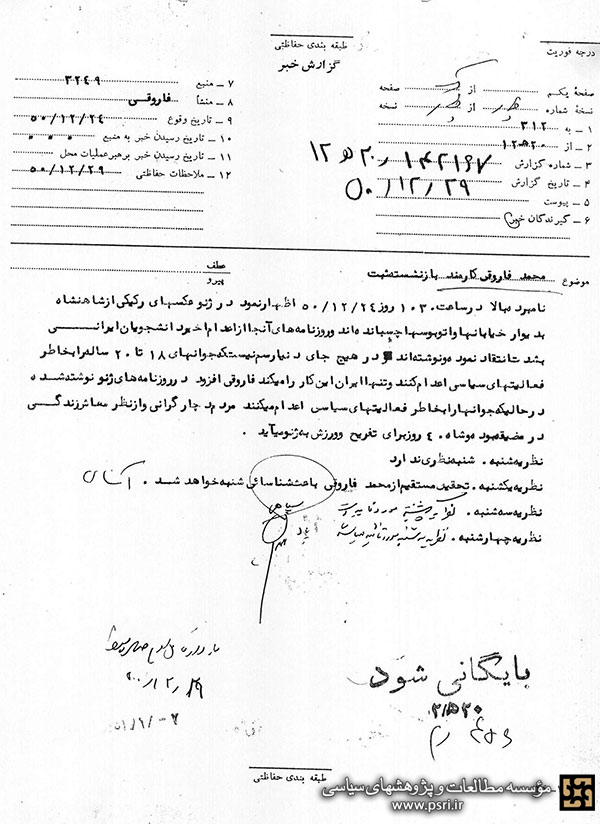 طبقه بندی حفاظتی
درجه فوریت
گزارش خبر
صفحهٔ یکم از صفحه
نسخهٔ شماره از نسخه
۱ – به ۳۱۲
۲ – از ۱۲ﻫ۲۰
۳ – شماره گزارش ۱۲ﻫ۲۰ر۱۴۲۱۶۷
۴ – تاریخ گزارش ۵۰/۱۲/۲۹
۵ – پیوست
۶ – گیرندگان خبر
۷ – منبع ۳۲۴۹
۸ – منشأ فاروقی
۹ – تاریخ وقوع ۵۰/۱۲/۲۴
۱۰ – تاریخ رسیدن خبر به منبع ۰۰۰
۱۱ – تاریخ رسیدن خبر برهبر عملیات محل
۱۲ – ملاحظات حفاظتی ۵۰/۱۲/۲۹
موضوع محمد فاروقی کارمند بازنشسته ثبت
عطف
پیرو
نامبرده بالا در ساعت ۱۰۳۰ روز ۵۰/۱۲/۲۴ اظهار نمود در ژنو عکسهای رکیکی از شاهنشاه
بدیوار خیابانها و اتوبوسها چسبانده اند و روزنامه های آنجا از اعدام اخیر دانشجویان ایرانی
بشدت انتقاد نموده و نوشته اند که در هیچ جای دنیا رسم نیست که جوانهای ۱۸ تا ۲۰ ساله را بخاطر
فعالیتهای سیاسی اعدام کنند و تنها ایران این کار را میکند فاروقی افزود در روزنامه های ژنو نوشته شده
در حالیکه جوانها را بخاطر فعالیتهای سیاسی اعدام میکنند مردم دچار گرانی و از نظر معاش زندگی
در مضیقه بوده و شاه ۴۰ روز برای تفریح و ورزش به ژنو میآید .
نظریه شنبه . شنبه نظری ندارد
نظریه یکشنبه . تحقیق مستقیم از محمد فاروقی باعث شناسائی شنبه خواهد شد .
نظریه سه شنبه . نظریه یکشنبه مورد تائید است
نظریه چهارشنبه . نظریه سه شنبه مورد تائید میباشد
بایگانی شود
۲۰ﻫ۲/
طبقه بندی حفاظتی
مؤسسه مطالعات و پژوهشهای سیاسی
www.psri.ir